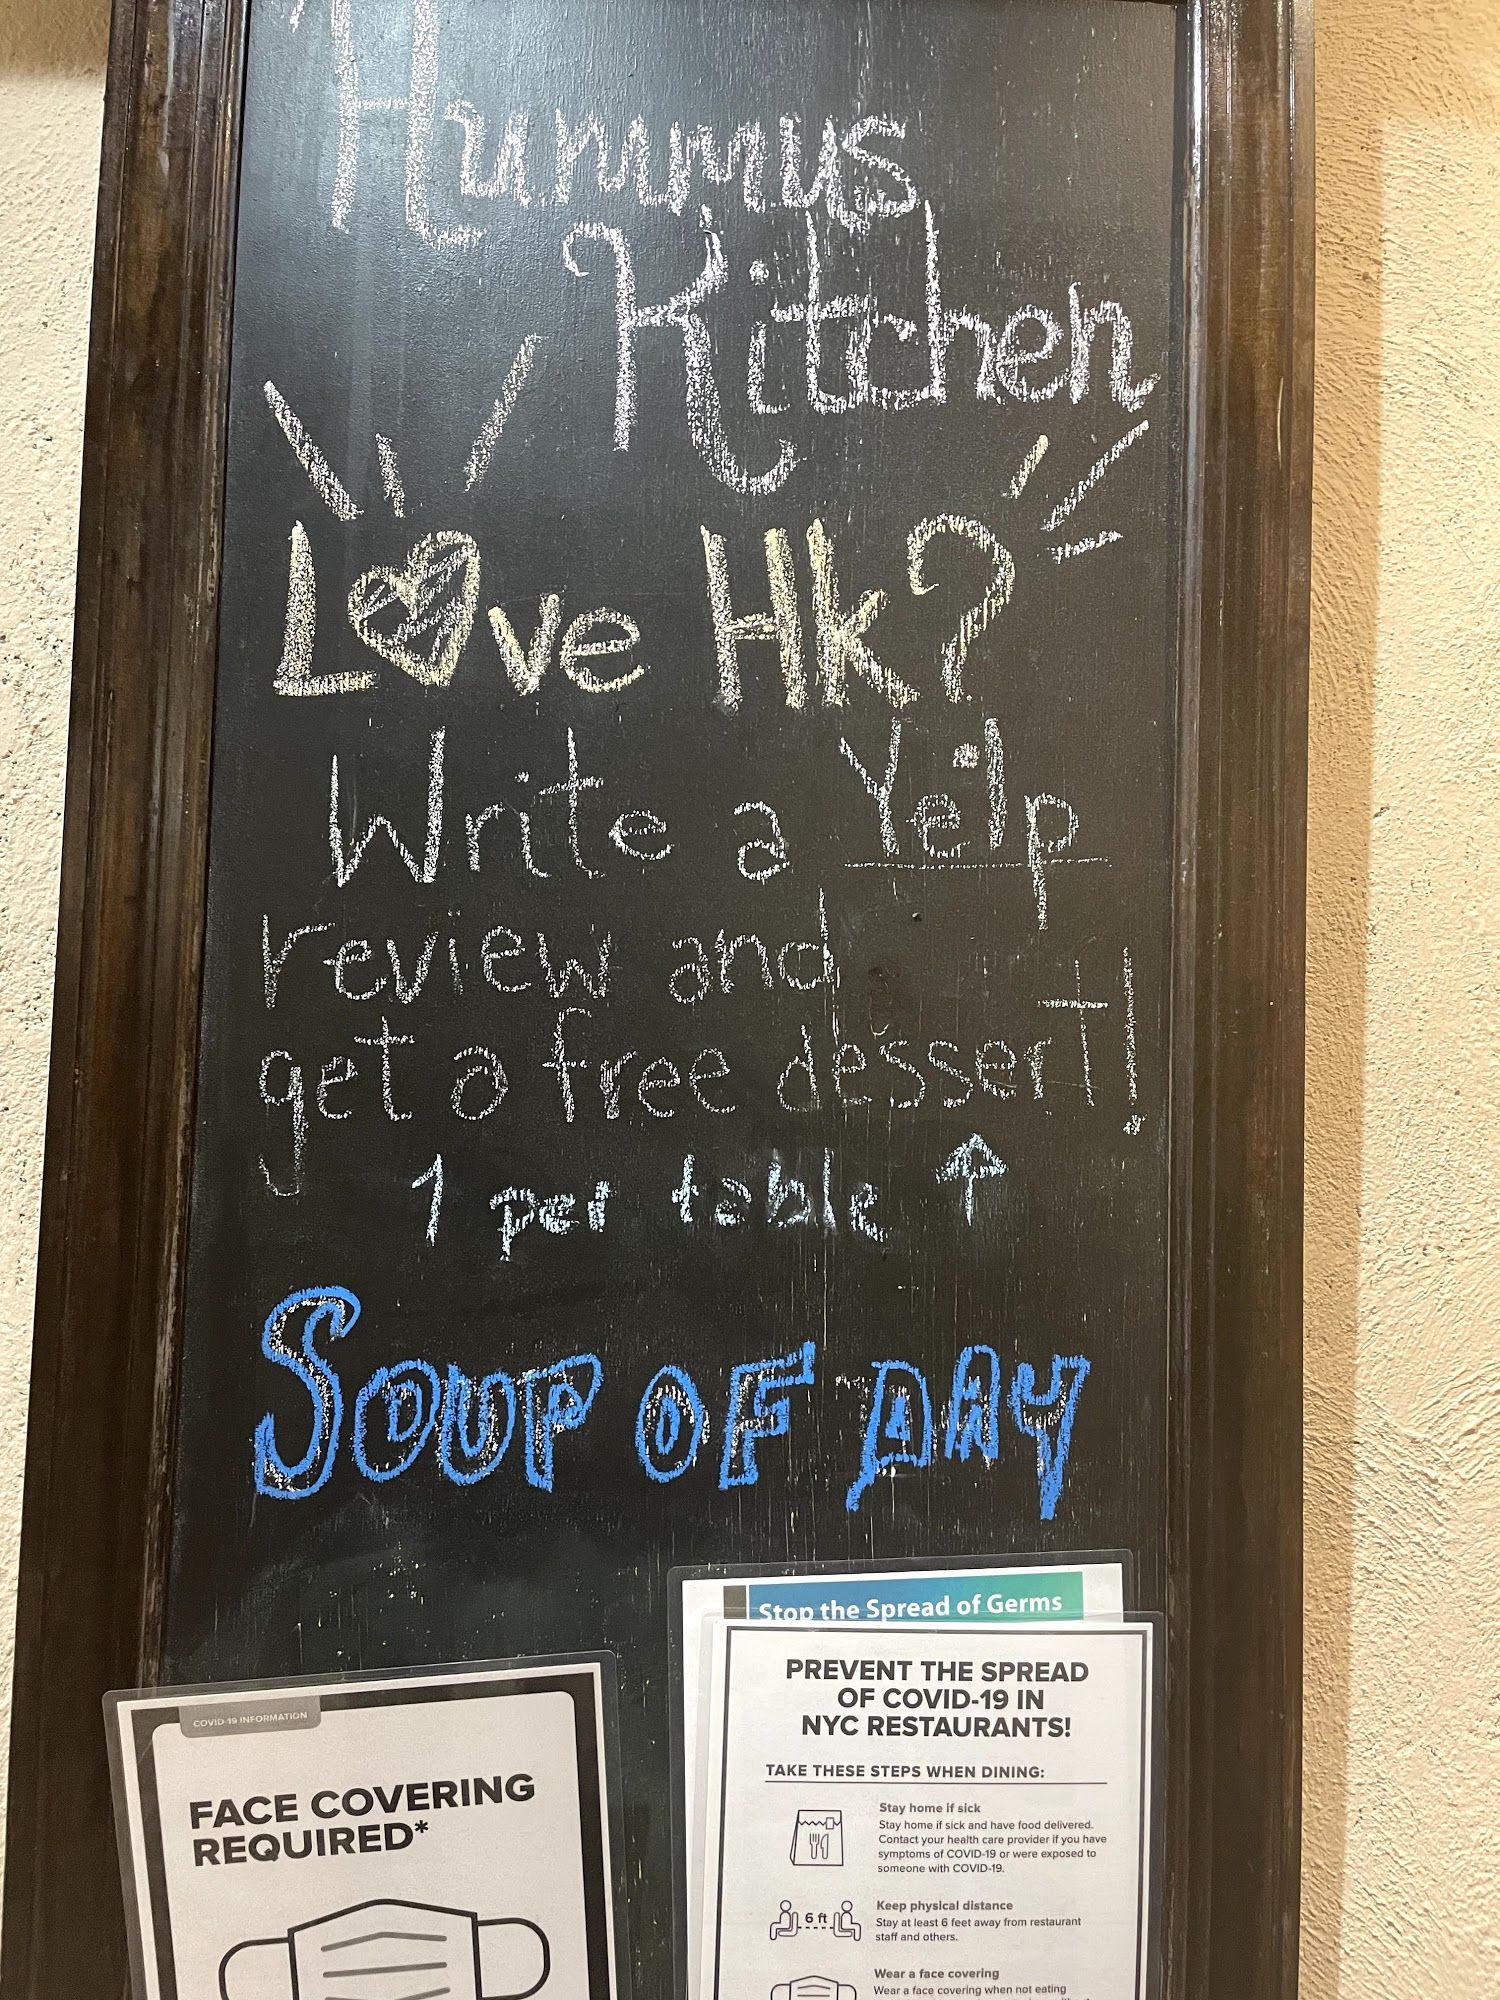 Hummus
Kitchen
Love Hk?
Write a Yelp
review and
get a free dessert!
1 per table ↑
SOUP OF DAY
Stop the Spread of Germs
COVID-19 INFORMATION
FACE COVERING
REQUIRED*
PREVENT THE SPREAD
OF COVID-19 IN
NYC RESTAURANTS!
TAKE THESE STEPS WHEN DINING:
Stay home if sick
Stay home if sick and have food delivered.
Contact your health care provider if you have
symptoms of COVID-19 or were exposed to
someone with COVID-19.
6 ft
Keep physical distance
Stay at least 6 feet away from restaurant
staff and others.
Wear a face covering
Wear a face covering when not eating